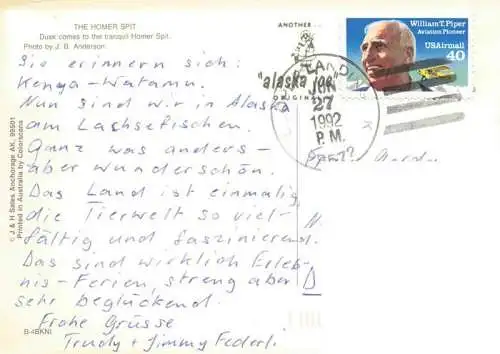 THE HOMER SPIT
Dusk comes to the tranquil Homer Spit.
Photo by J. B. Anderson
Sie erinnern sich:
Kenya-Watamu.
Nun sind wir in Alaska
am Lachsefischen.
Ganz was anders-
aber wunderschön.
Das Land ist einmalig,
die Tierwelt so viel-
fältig und faszinierend.
Das sind wirklich Erleb-
nis-Ferien, streng aber
sehr beglückend.
Frohe Grüsse
Trudy + Jimmy Federl.
B-4BKNI
© J & H Sales Anchorage AK, 99501
Printed in Australia by Colorscans
ANOTHER
"alaska joe"
ORIGINAL
JUN
27
1992
P.M.
William T. Piper
Aviation Pioneer
USAirmail
40
D